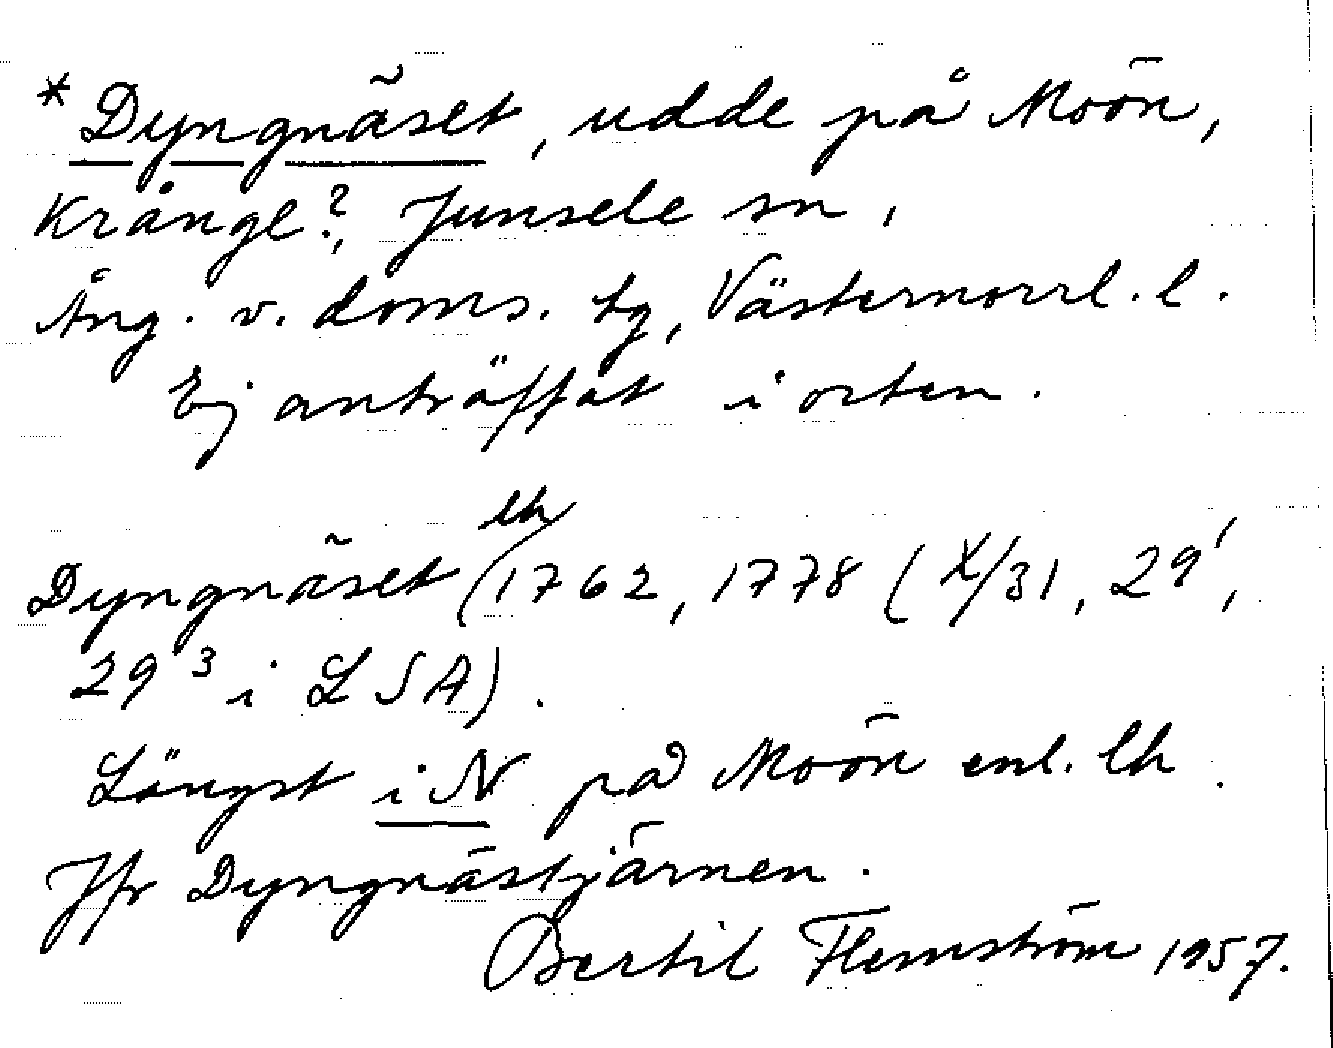 *Dyngnäset, udde på Moön,
Krånge?, Junsele sn,
Ång. v. doms. tg, Västernorrl. l.
Ej anträffat i orten.
lh
Dyngnäset (1762, 1778 (X/31, 29¹,
29³ i LSA).
Längst i N på Moön enl. lh.
Jfr Dyngnästjärnen.
Bertil Flemström 1957.